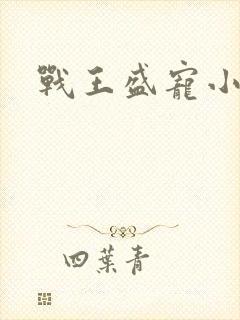 戰王盛寵小
四葉青